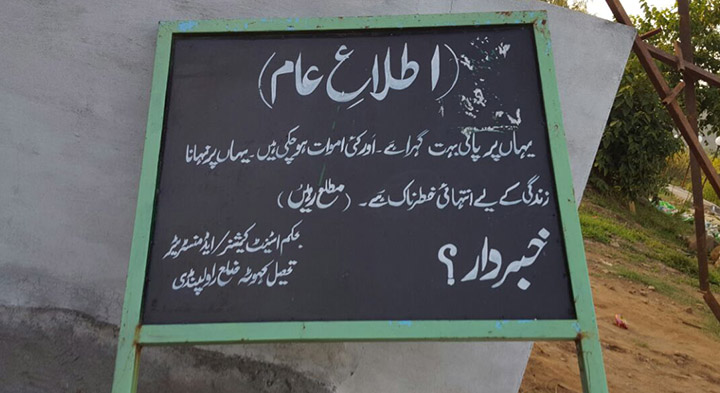 (اطلاعِ عام)
یہاں پر پانی بہت گہرا ہے۔ اور کئی اموات ہوچکی ہیں۔ یہاں پر نہانا
زندگی کے لیے انتہائی خطرناک ہے۔ (مطلع رہیں)
خبردار؟
بحکم اسٹنٹ کمیشنر/ایڈمنسٹریٹر
تحصیل کہوٹہ ضلع راولپنڈی